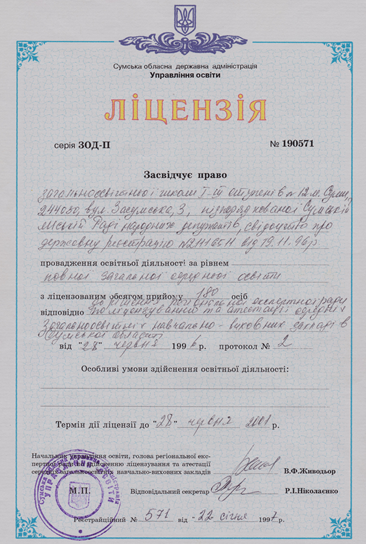 Сумська обласна державна адміністрація
Управління освіти
ЛІЦЕНЗІЯ
серія ЗОД-П № 190571
Засвідчує право
загальноосвітньої школи І-ІІІ ступенів № 12 м. Суми,
вул. Засумська, 3,
міській Раді народних депутатів, свідоцтво про
державну реєстрацію від 19.11.96р
провадження освітньої діяльності за рівнем
повної загальної середньої освіти
з ліцензованим обсягом прийому 180 осіб
відповідно експертної ради
по ліцензуванню та атестації середніх
загальноосвітніх навчально-виховних закладів
Сумської області
від "28" червня 199 р. протокол № 2
Особливі умови здійснення освітньої діяльності:
Термін дії ліцензії до "28" червня 2001 р.
Начальник управління освіти, голова регіональної експертної ради
ліцензування та атестації
навчально-виховних закладів
В.Ф.Живодьор
М.П.
Відповідальний секретар
Р.І.Ніколаєнко
Реєстраційний № 571 від 22 січня 1997 р.
УПРАВЛІННЯ ОСВІТИ